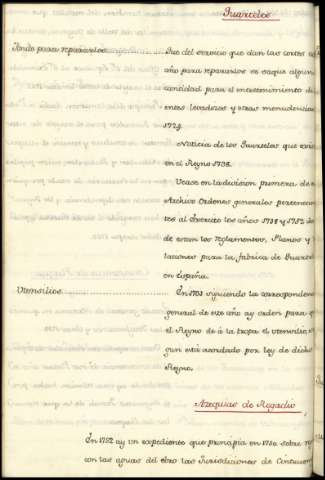 Quarteles
Fondo para repararlos
Que del servicio que dan las Cortes cada
año para repararlos se saque alguna
cantidad para el mantenimiento de
entes lavaderos y otras menudencias
1724.
Noticia de los Quarteles que avia
en el Reyno 1738.
Vease en la division primera de este
Archivo Ordenes generales pertenecien
tes al Exercito los años 1718 y 1752 don
de estan los reglamentos, Planos y
taciones para la fabrica de Quarteles
en España.
Utensilios
En 1703 siguiendo la correspondencia
general de este año ay orden para q
el Reyno de á la tropa el utensilio se
gun está acordado por ley de dicho
Reyno.
Azequias de Regadio
En 1752 ay un expediente que principia en 1750 sobre
con las aguas del ebro las Jurisdiciones de